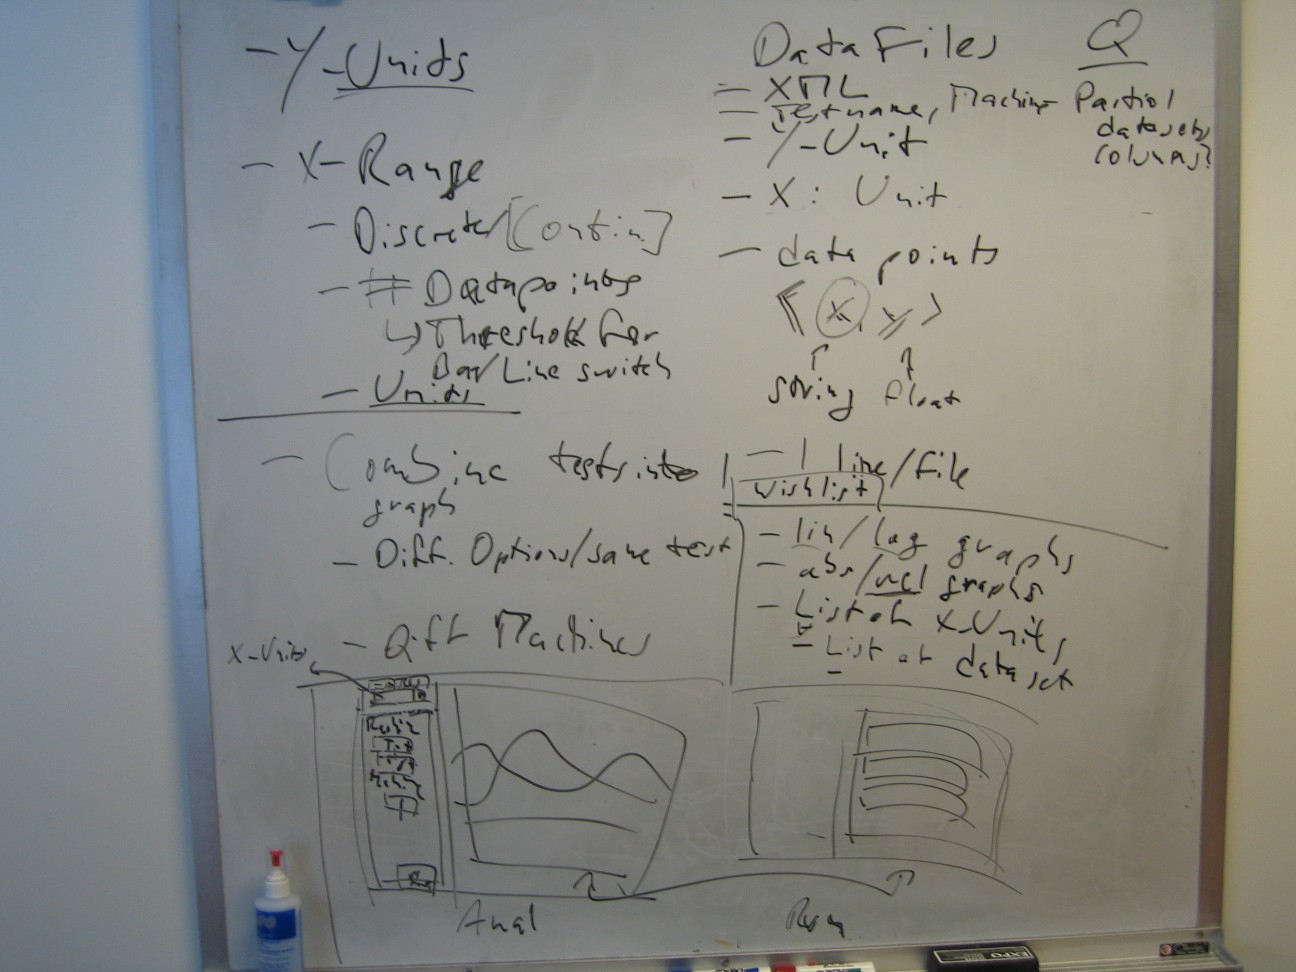 - Y-Units
- X-Range
- Discrete/[Contin]
- # Datapoints
↳ Threshold for
Bar/Line switch
- Units
- Combine tests into 1
graph
- Diff. Options/same test
- Diff Machines
Data Files
- XML
- Testname, Machine
- Y-Unit
- X: Unit
- data points
<X, Y>
string float
- 1 line/file
Q
Partial
datasets
columns?
wishlist
- lin/log graphs
- abs/rel graphs
- List of X-Units
- List of dataset
X-Units
Anal
Run
EXPO